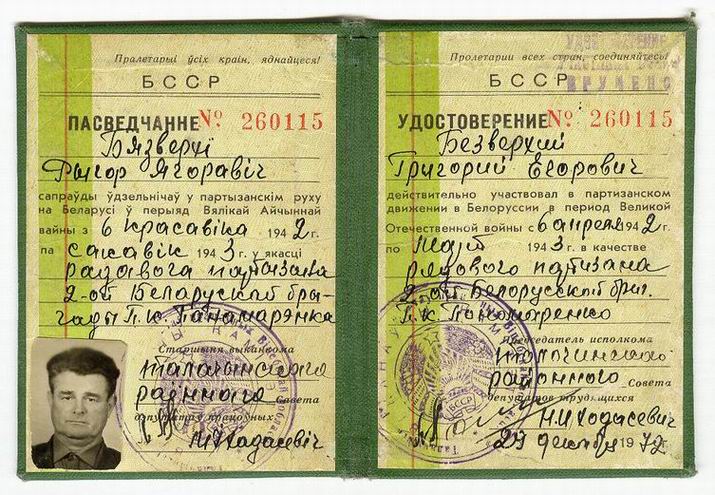 Пралетарыі ўсіх краін, яднайцеся!
БССР
ПАСВЕДЧАННЕ № 260115
Бязверхі
Рыгор Ягоравіч
сапраўды ўдзельнічаў у партызанскім руху
на Беларусі ў перыяд Вялікай Айчыннай
вайны з 6 красавіка 1942 г.
па сакавік 1943 г. у якасці
радавога партызана
2-ой Беларускай бры-
гады П.К. Панамарэнка
Старшыня выканкома
талачынскага
раённага Савета
дэпутатаў працоўных
Н.І. Хадасевіч
Пролетарии всех стран, соединяйтесь!
БССР
УДОСТОВЕРЕНИЕ № 260115
Безверхий
Григорий Егорович
действительно участвовал в партизанском
движении в Белоруссии в период Великой
Отечественной войны с 6 апреля 1942 г.
по март 1943 г. в качестве
рядового партизана
2-ой Белорусской бриг.
П.К. Пономаренко
Председатель исполкома
толочинского
районного Совета
депутатов трудящихся
Н.И. Ходасевич
29 декабря 1972
УДОСТОВЕРЕНИЕ
ВРУЧЕНО
БССР